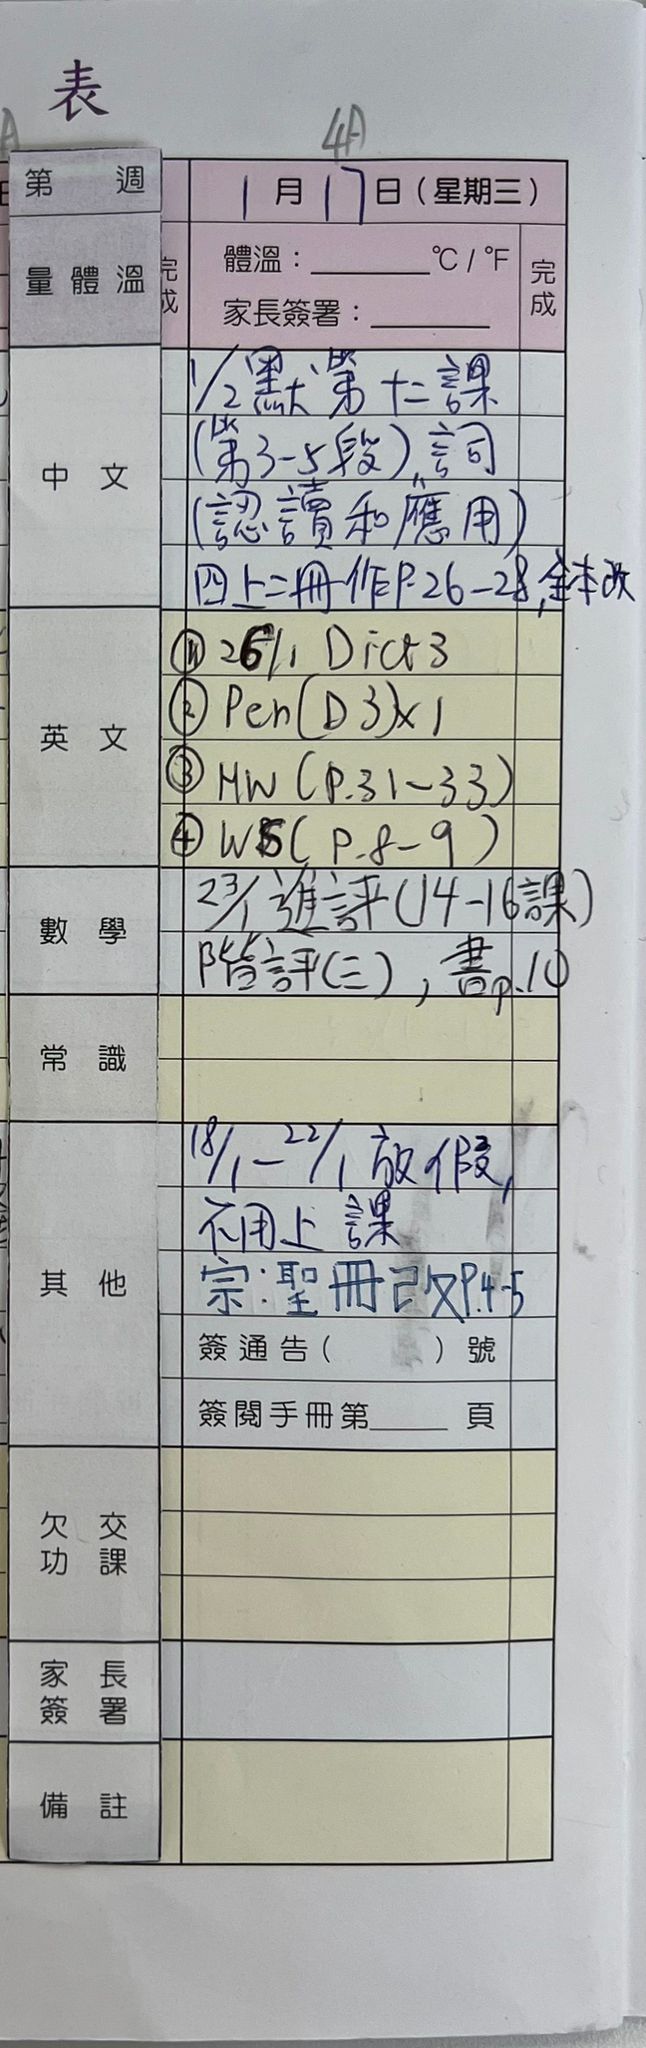 表
4A
第 週
1月17日（星期三）
量體溫
完成
體溫：________℃/℉
家長簽署：________
完成
中文
1/2 默第十二課
(第3-5段),詞
(認讀和應用)
四上二冊作P.26-28,
英文
① 26/1 Dict 3
② Pen(D3)x1
③ HW (P.31-33)
④ WS( P.8-9)
數學
23/1 進評(14-16課)
階評(三),書p.10
常識
其他
18/1-22/1 放假,
不用上課
宗:聖冊改P.4-5
簽通告( )號
簽閱手冊第____頁
欠交功課
家長簽署
備註